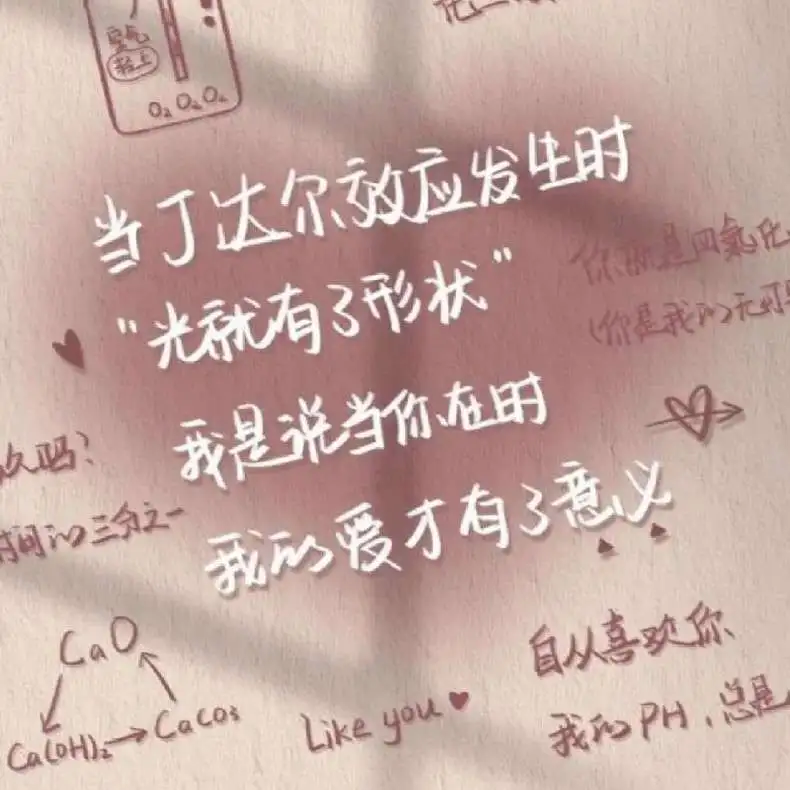 空气
O₂ O₂ O₂
当丁达尔效应发生时
“光就有了形状”
你就是四氧化
(你是我的无可
我是说当你在时
久吗?
时间的三分之一
我的爱才有了意义
CaO
Ca(OH)₂→CaCO₃
Like you
自从喜欢你
我的PH,总是